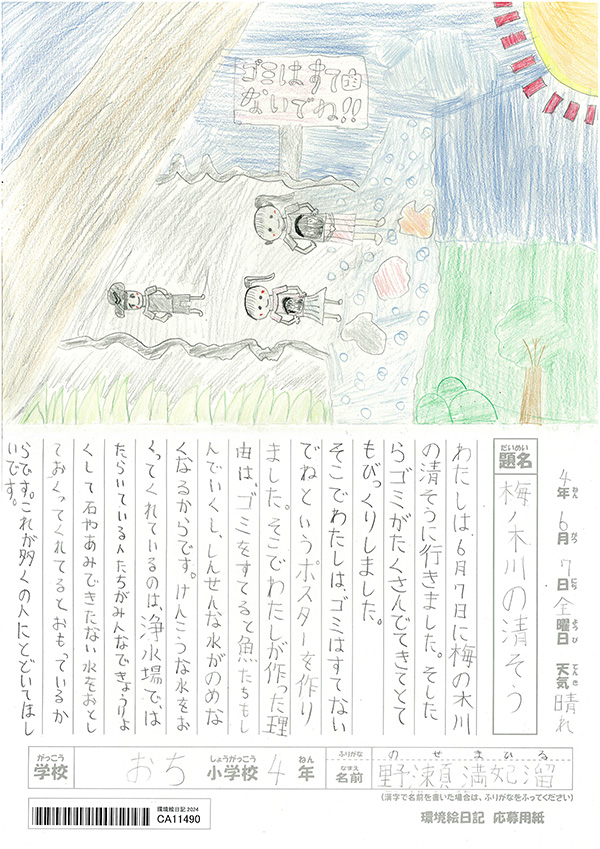 ゴミはすて歯
ないでね!!
4年 6月 7日 金曜日 天気 晴れ
ねん がつ にち ようび てんき
だいめい
題名
梅ノ木川の清そう
わたしは、6月7日に梅の木川
の清そうに行きました。そした
らゴミがたくさんでてきてとて
もびっくりしました。
そこでわたしは、ゴミはすてない
でねというポスターを作り
ました。そこでわたしが作った理
由は、ゴミをすてると魚たちもし
んでいくし、しんせんな水がのめな
くなるからです。けんこうな水をお
くってくれているのは、浄水場では
たらいている人たちがみんなできょうりょ
くして石やあみできたない水をおとし
ておくってくれてるとおもっているか
らです。これが多くの人にとどいてほし
いです。
がっこう
学校
おち
しょうがっこう
小学校
4
ねん
年
ふりがな
のせまひる
なまえ
名前
野瀬満妃溜
(漢字で名前を書いた場合は、ふりがなをふってください)
環境絵日記 応募用紙
環境絵日記2024
CA11490